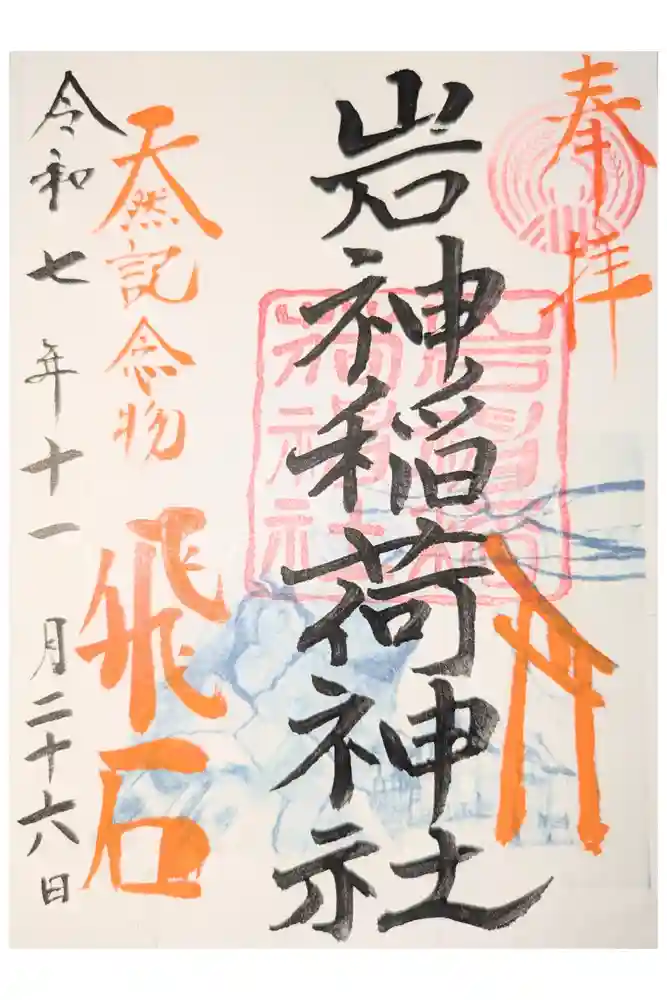 奉拝
岩神稲荷神社
天然記念物
飛石
令和七年十一月二十六日